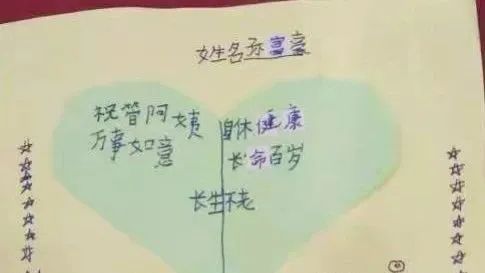 姓名孙富豪
祝管阿姨
万事如意
身休健康
长命百岁
长生不老